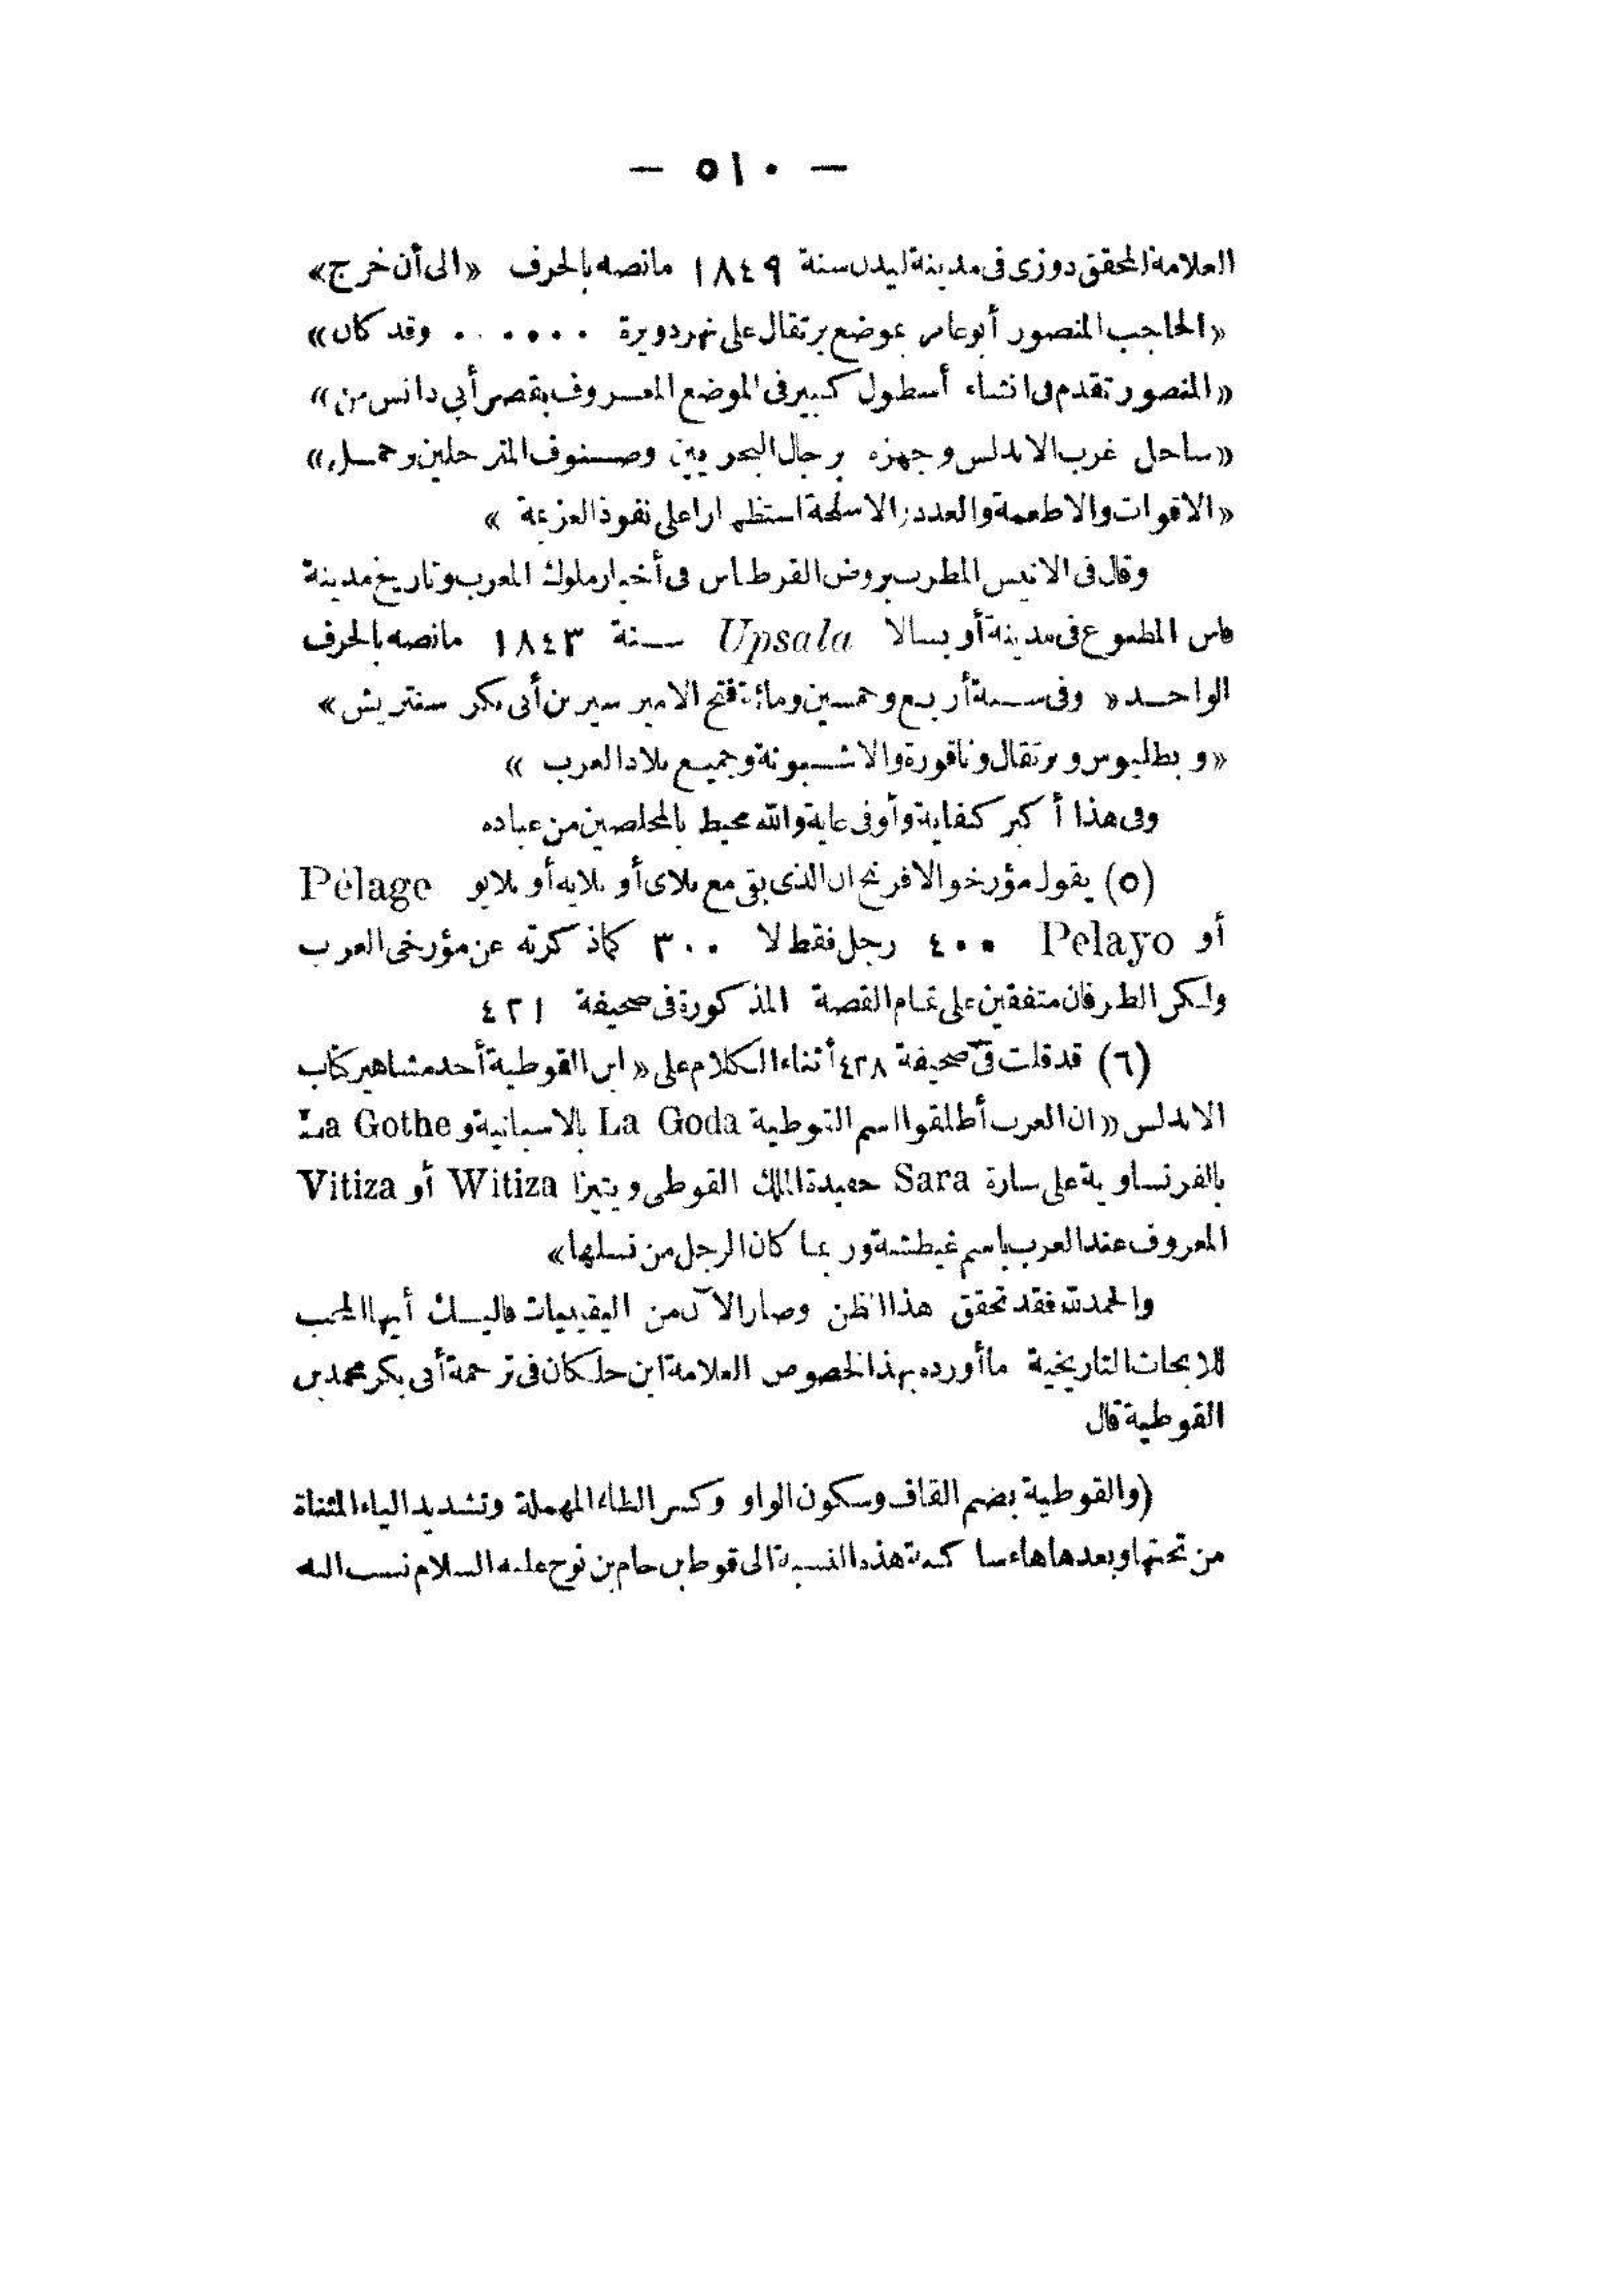 — ٥١٠ —
العلامة المحقق دوزى فى مدينة ليدن سنة ١٨٤٩ مانصه بالحرف «الى أن خرج»
«الحاجب المنصور أبو عامر بموضع برتقال على نهر دويرة ...... وقد كان»
«المنصور تقدم فى انشاء أسطول كبير فى الموضع المعروف بقصر أبي دانس من»
«ساحل غرب الاندلس وجهزه برجال البحريين وصنوف المترجلين وحمل»
«الاقوات والاطعمة والعدد والاسلحة استظهارا على نفوذ العزيمة»
وقال فى الانيس المطرب بروض القرطاس فى أخبار ملوك المغرب وتاريخ مدينة
فاس المطبوع فى مدينة أوبسالا Upsala سنة ١٨٤٣ مانصه بالحرف
الواحد «وفى سنة أربع وخمسين ومائة فتح الامير سير بن أبى بكر سنتريش»
«وبطليوس وبرتقال وناقورة والاشبونة وجميع بلاد الغرب»
وفى هذا أكبر كفاية وأوفى غاية والله محيط بالمخلصين من عباده
(٥) يقول مؤرخو الافرنج ان الذى بقى مع بلاى أو بلايه أو بلايو Pélage
أو Pelayo ٤٠٠ رجل فقط لا ٣٠٠ كما ذكرته عن مؤرخى العرب
ولكن الطرفان متفقين على تمام القصة المذكورة فى صحيفة ٤٢١
(٦) قد قلت فى صحيفة ٤٢٨ أثناء الكلام على «ابن القوطية أحد مشاهير كتاب
الاندلس «ان العرب أطلقوا اسم القوطية La Goda بالاسبانية و La Gothe
بالفرنساوية على سارة Sara حفيدة الملك القوطى ويتيزا Witiza أو Vitiza
المعروف عند العرب باسم غيطشة وربما كان الرجل من نسلها»
والحمد لله فقد تحقق هذا الظن وصار الآن من اليقينيات فاليك أيها المحب
للابحاث التاريخية ما أورده بهذا الخصوص العلامة ابن خلكان فى ترجمة أبى بكر محمد بن
القوطية قال
(والقوطية بضم القاف وسكون الواو وكسر الطاء المهملة وتشديد الياء المثناة
من تحتها وبعدها هاء ساكنة هذه النسبة الى قوط بن حام بن نوح عليه السلام نسب اليه